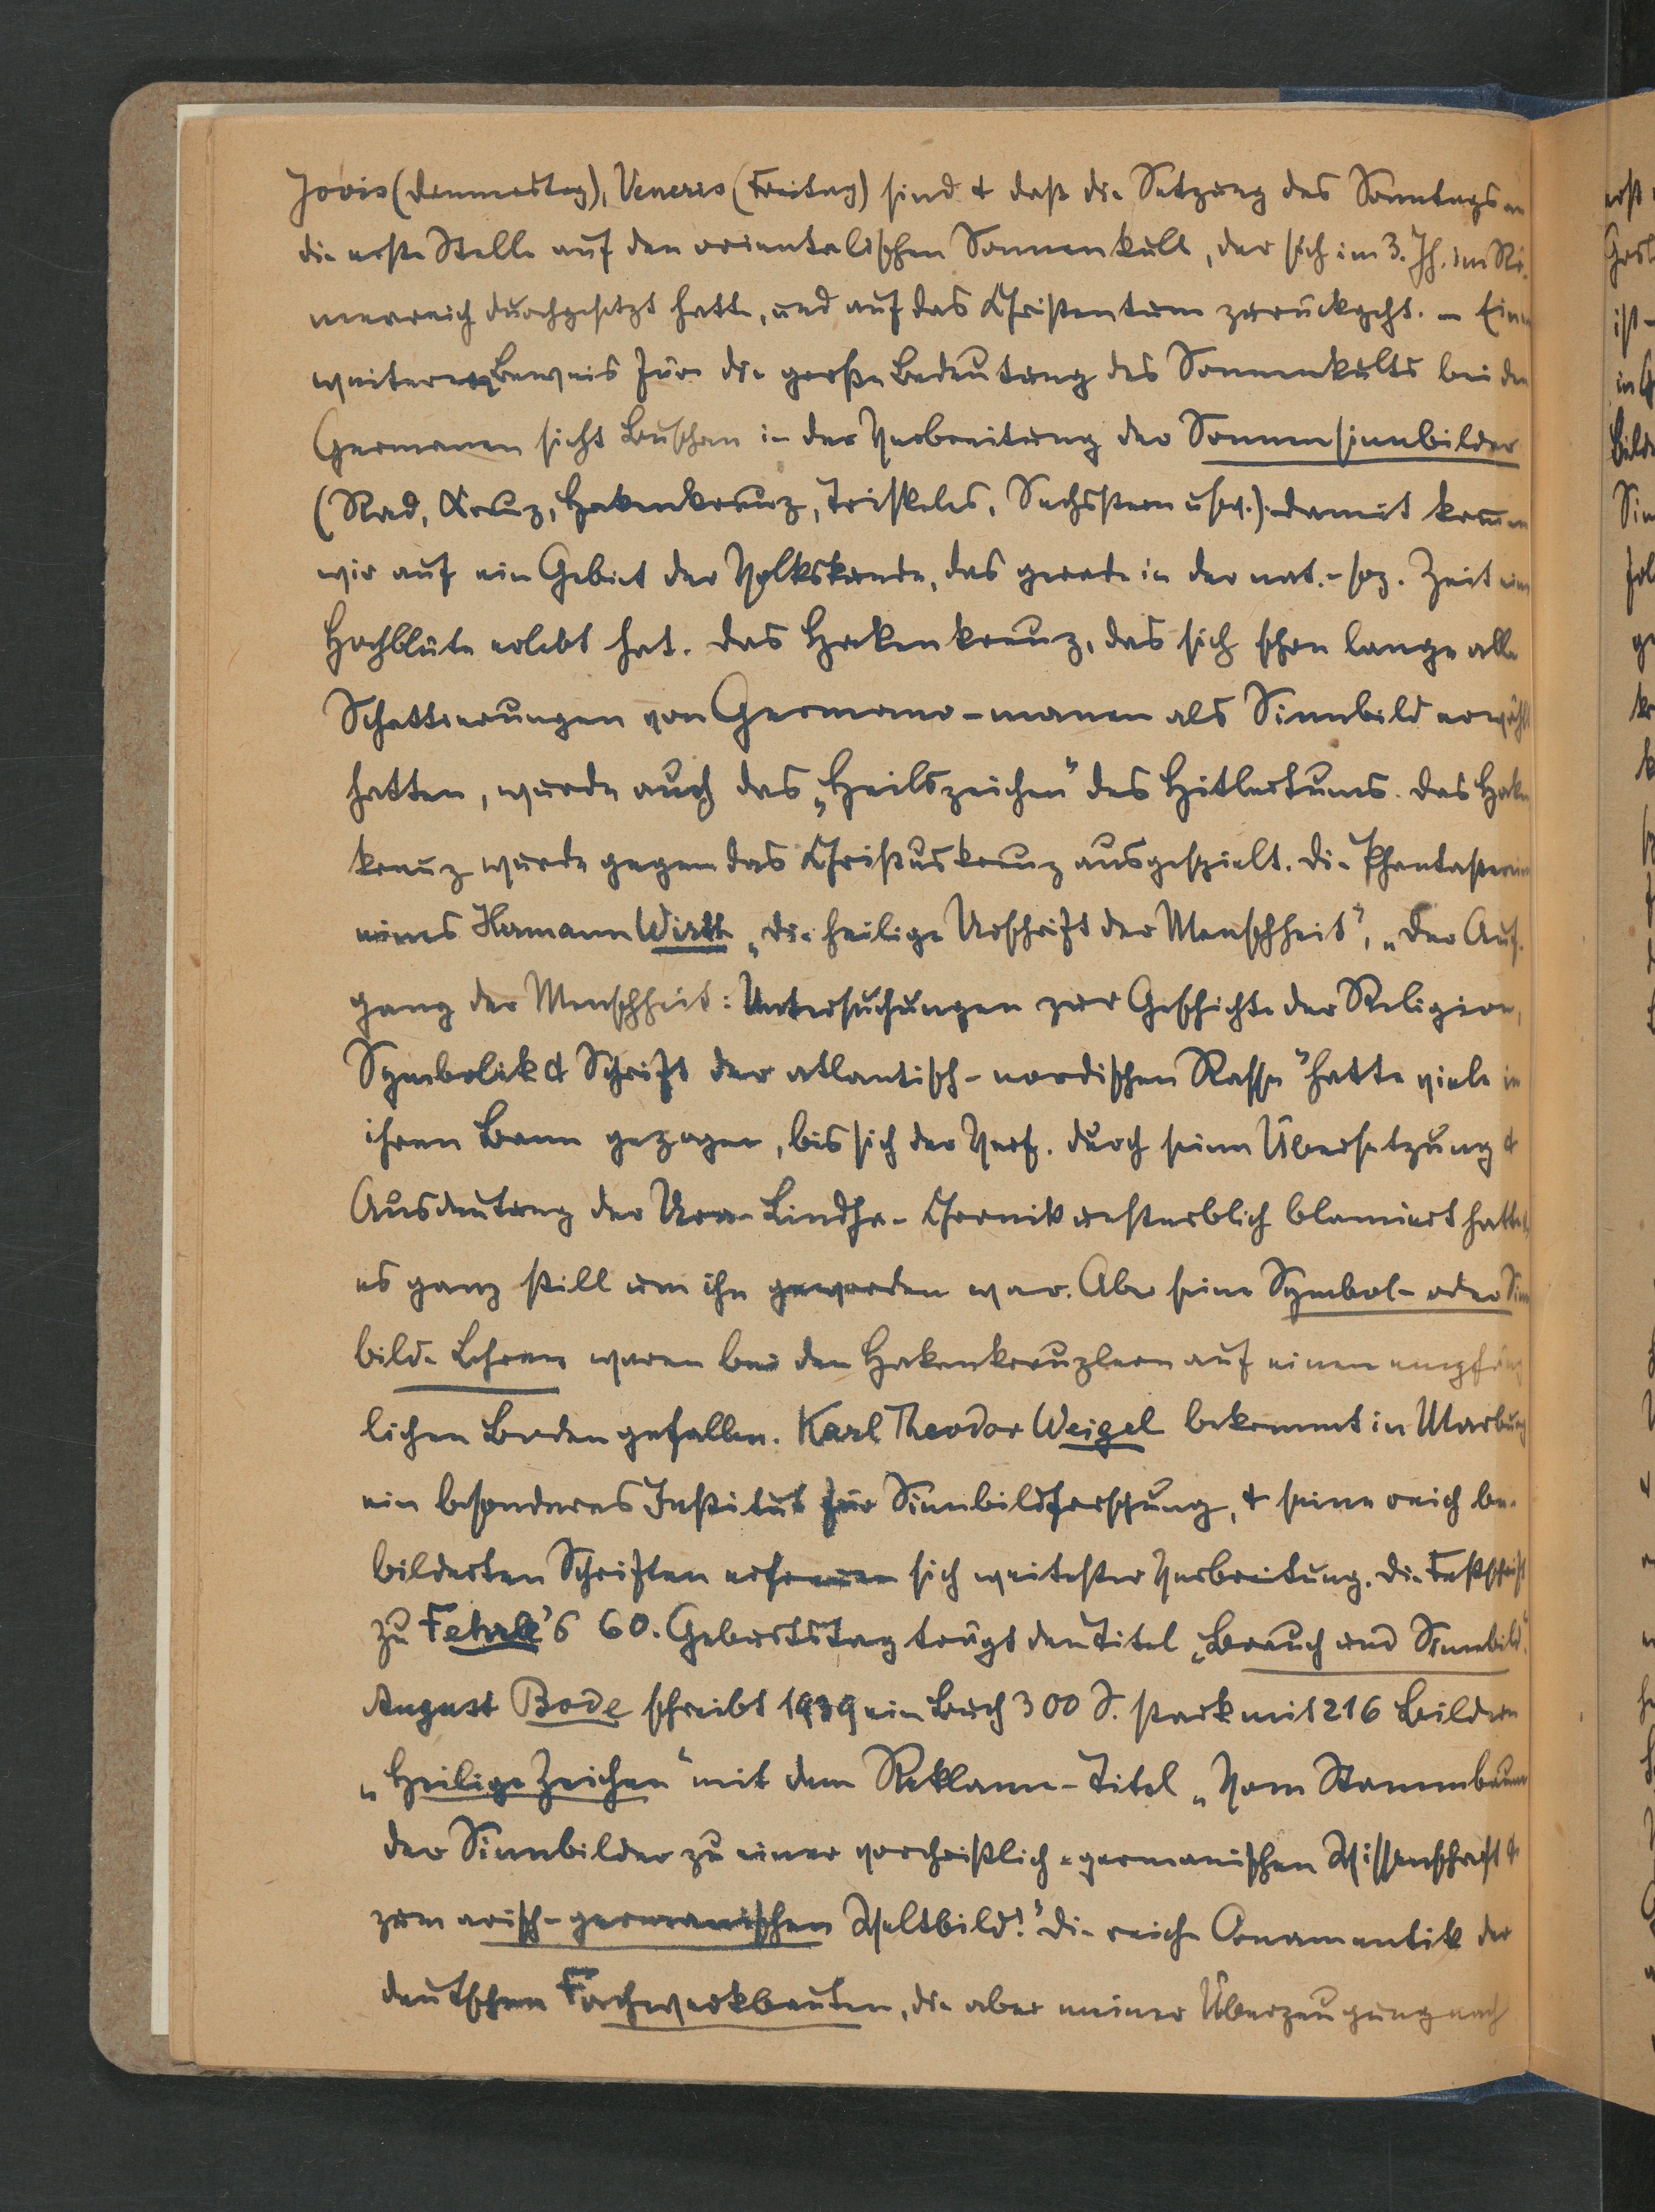 Jovis (Donnerstag), Veneris (Freitag) sind & daß die Setzung des Sonntags an
die erste Stelle auf den orientalischen Sonnenkult, der sich im 3. Jh. im Rö-
merreich durchgesetzt hatte, und auf das Christentum zurückgeht. – Einen
weiteren Beweis für die große Bedeutung des Sonnenkults bei den
Germanen sieht Buschan in der Verbreitung der Sonnensinnbilder
(Rad, Kreuz, Hakenkreuz, Triskeles, Sechsstern usw.). Damit kommen
wir auf ein Gebiet der Volkskunde, das gerade in der nat.-soz. Zeit eine
Hochblüte erlebt hat. Das Hakenkreuz, das sich schon lange alle
Schattierungen von Germano-manen als Sinnbild erwählt
hatten, wurde auch das „Heilszeichen“ des Hitlertums. Das Haken
kreuz wurde gegen das Christuskreuz ausgespielt. Die Phantastereien
eines Hermann Wirth „Die heilige Urschrift der Menschheit“, „Der Auf-
gang der Menschheit: Untersuchungen zur Geschichte der Religion,
Symbolik & Schrift der atlantisch-nordischen Rasse“ hatte viele in
ihren Bann gezogen, bis sich der Verf. durch seine Übersetzung &
Ausdeutung der Ura-Lindha-Chronik unsterblich blamiert hatte &
es ganz still um ihn geworden war. Aber seine Symbol- oder Sinn
bild-Lehren waren bei den Hakenkreuzlern auf einen empfäng
lichen Boden gefallen. Karl Theodor Weigel bekommt in Marburg
ein besonderes Institut für Sinnbildforschung, & seine reich be-
bilderten Schriften erfreuen sich weitester Verbreitung. Die Festschrift
zu Fehrle's 60. Geburtstag trägt den Titel „Brauch und Sinnbild“.
August Bode schreibt 1939 ein Buch 300 S. stark mit 216 Bildern
„Heilige Zeichen“ mit dem Reklame-Titel „Vom Stammbaum
der Sinnbilder zu einer vorchristlich-germanischen Wissenschaft &
zum arisch-germanischen Weltbild!“ Die reiche Ornamentik der
deutschen Fachwerkbauten, die aber meiner Überzeugung nach